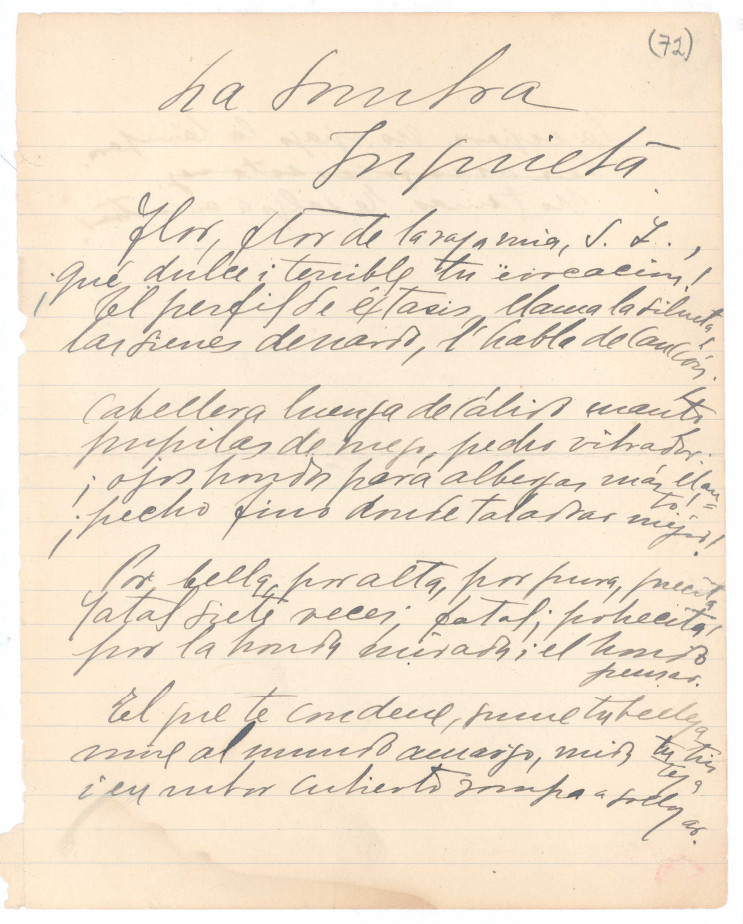 (72)
La Sombra
Inquieta.
Flor, flor de la raza mia, S. I.,
¡qué dulce i terrible tu evocación!
El perfil de éxtasis, llama la silueta,
las sienes de nardo, l'habla de canción.
Cabellera luenga de cálido manto
pupilas de ruego, pecho vibrador.
¡ojos hondos para albergar más llan=
to.
¡pecho fino donde taladrar mejor!
Por bella, por alta, por pura, precita
fatal siete veces; fatal; pobrecita!
por la honda mirada i el hondo
pensar.
El que te condene, sume tu belleza
mire al mundo amargo, mida tu tris
teza
i en rubor cubierto rompa a solloz
ar.